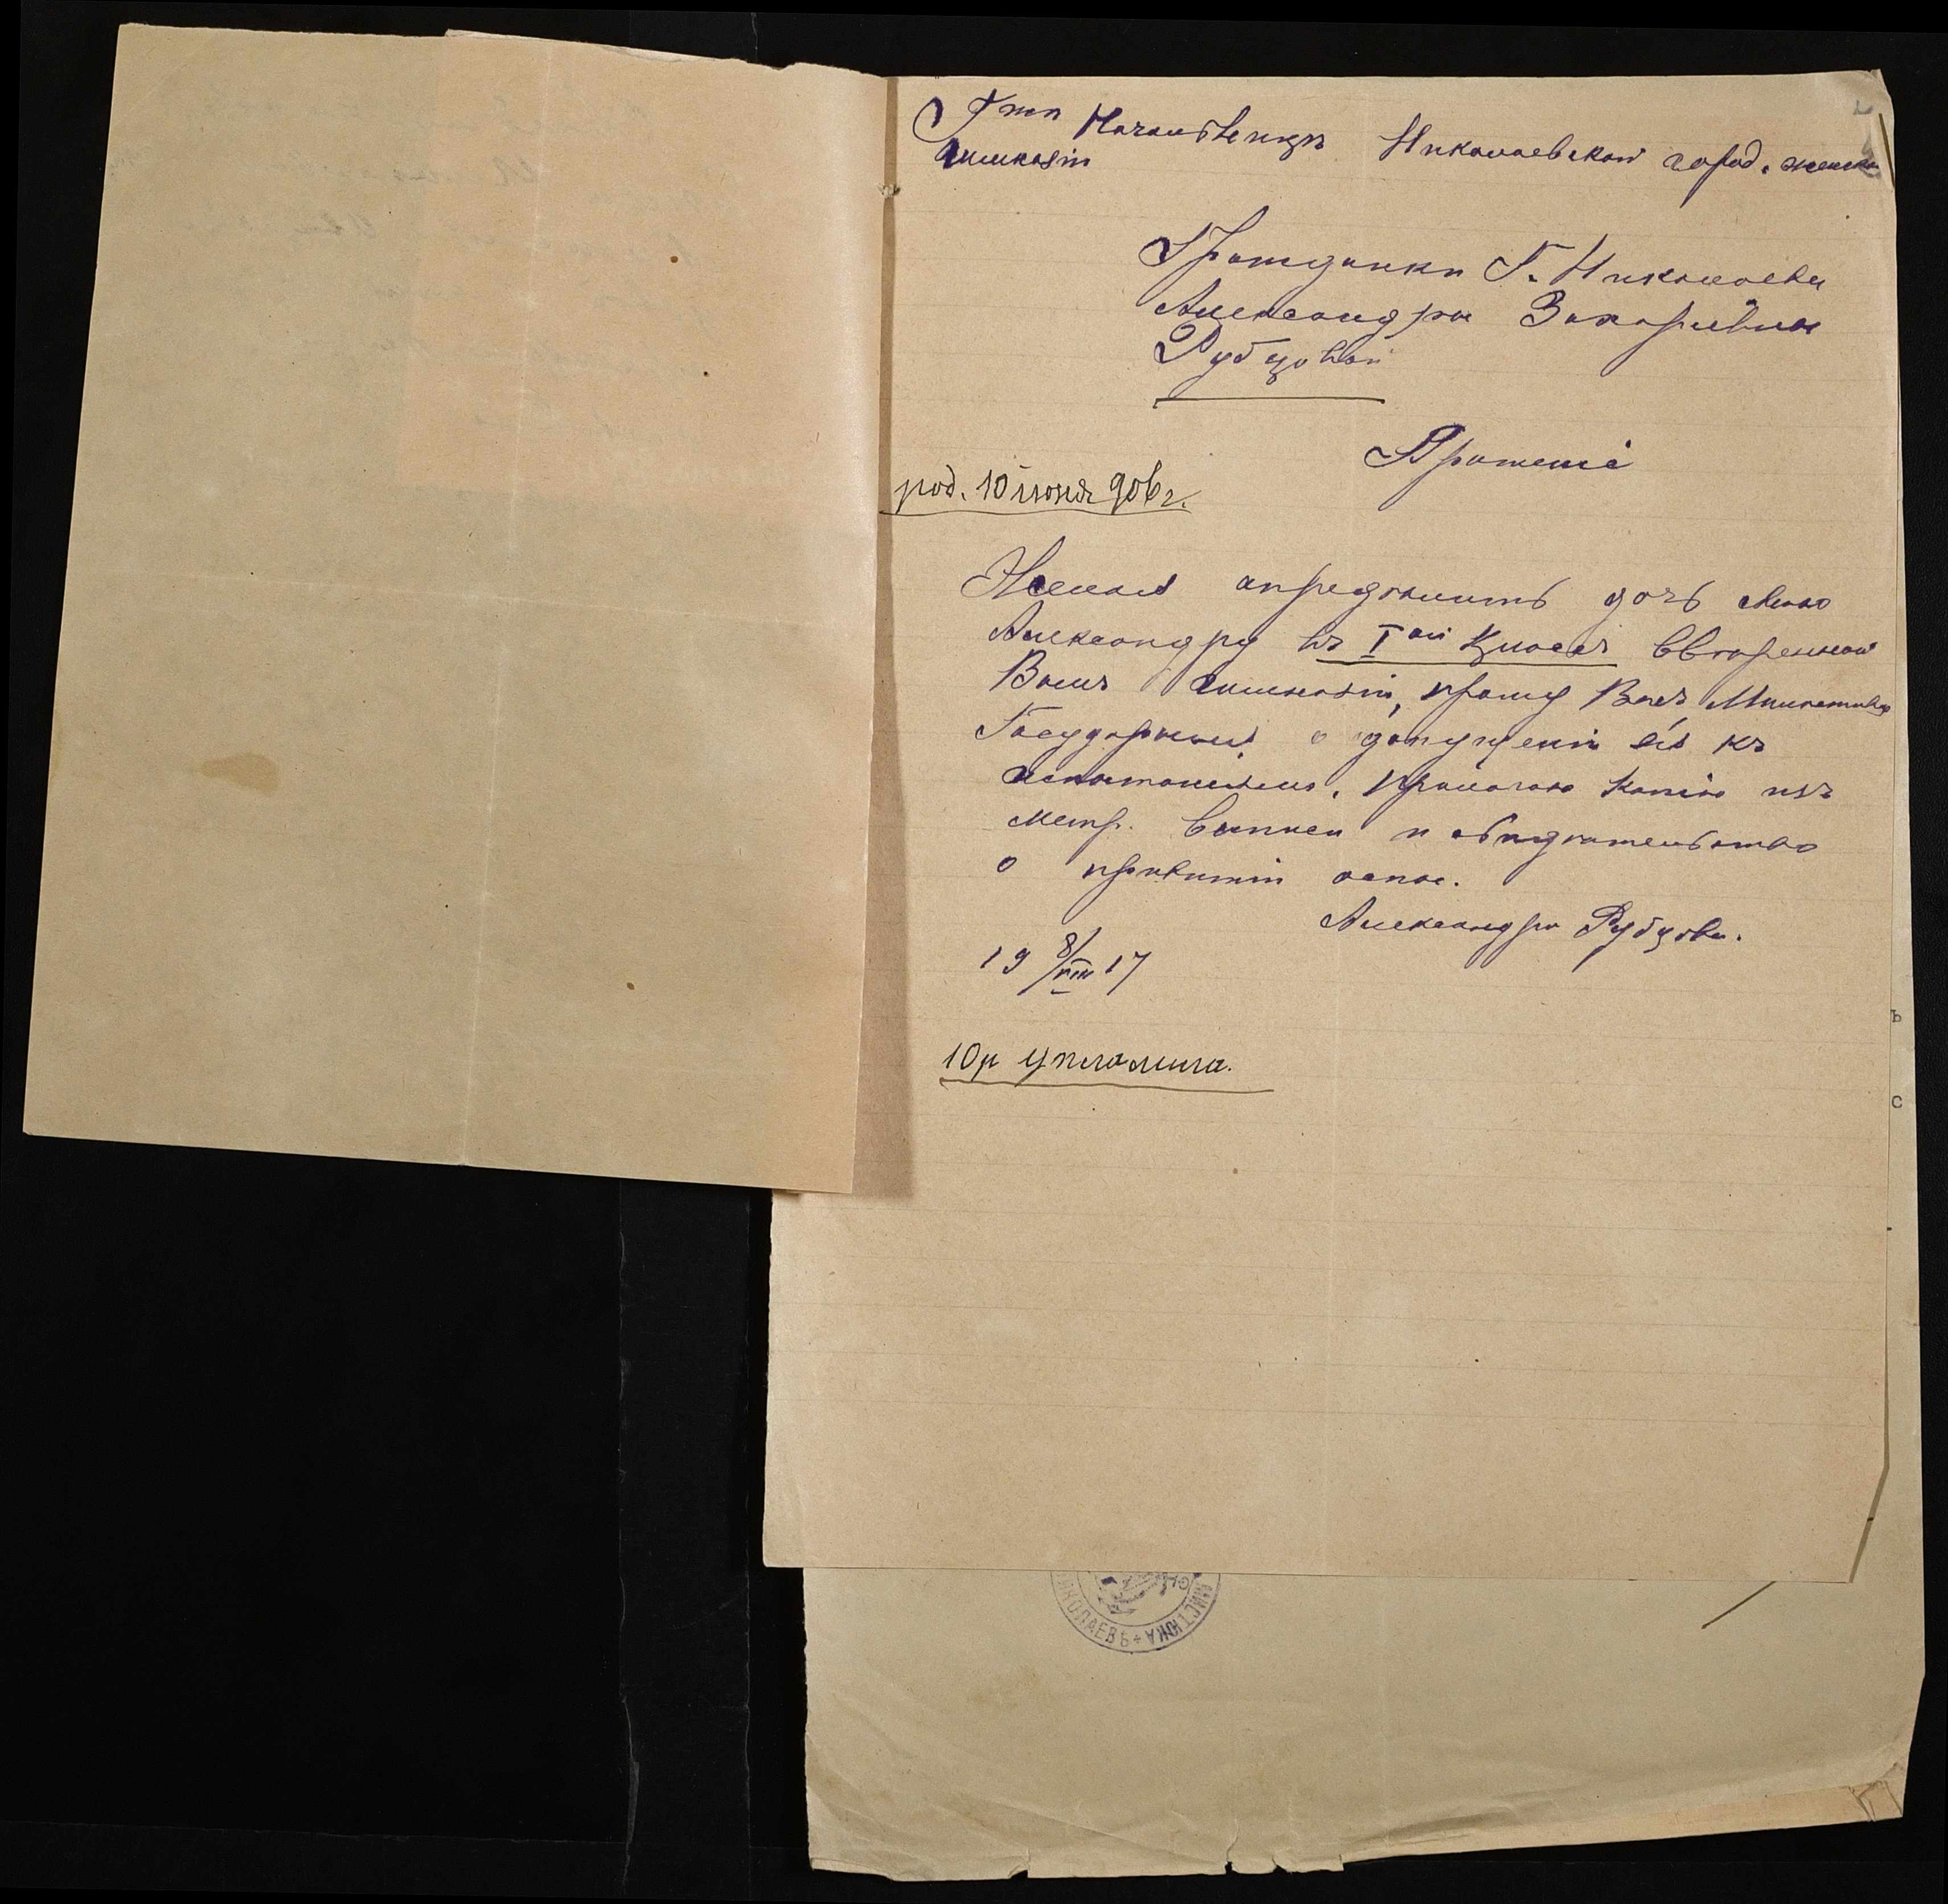 Г-жѣ Начальницѣ Николаевской город. женск.
гимназіи
Гражданки Г. Николаева
Александры Захаріевны
Рубцовой
Прошеніе
род. 10 іюня 906 г.
Желая опредѣлить дочь мою
Александру въ I ой классъ ввѣренной
Вамъ гимназіи, прошу Васъ Милостивая
Государыня, о допущеніи ея къ
испытаніямъ. Прилагаю копію изъ
метр. выписи и свидѣтельство
о привитіи оспы.
Александра Рубцова.
19 8/VIII 17
10 р уплатила.
НИКОЛАЕВЪ